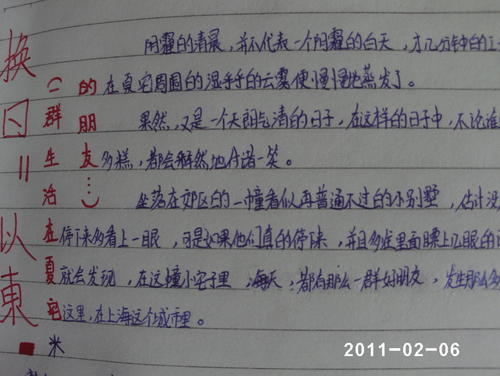 换日〓以東
(一群生活在夏宅
的朋友…)
阴霾的清晨，并不代表一个阴霾的白天，才几分钟的工
在夏宅周围的湿乎乎的云雾便慢慢地蒸发了。
果然，又是一个天朗气清的日子，在这样的日子中，不论谁
多糕，都会释然地付诸一笑。
坐落在郊区的一幢看似再普通不过的小别墅，估计没
停下来多看上一眼，可是如果他们真的停下来，并且多往里面瞟上几眼的
就会发现，在这幢小宅子里，每天，都有那么一群好朋友，发生那么多
这里，在上海这个城市里。
米
2011-02-06